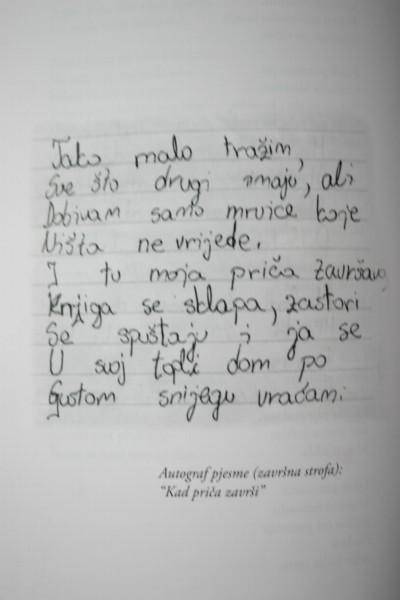 Tako malo tražim,
Sve što drugi imaju, ali
Dobivam samo mrvice koje
Ništa ne vrijede.
I tu moja priča završava,
Knjiga se sklapa, zastori
Se spuštaju i ja se
U svoj topli dom po
Gustom snijegu vraćam.
Autograf pjesme (završna strofa):
"Kad priča završi"